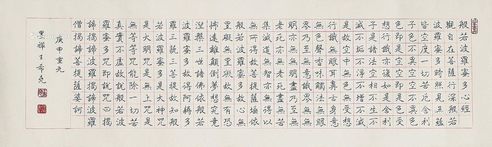 般若波羅蜜多心經
觀自在菩薩行深般若
波羅蜜多時照見五蘊
皆空度一切苦厄舍利
子色不異空空不異色
色即是空空即是色受
想行識亦復如是舍利
子是諸法空相不生不
滅不垢不淨不增不減
是故空中無色無受想
行識無眼耳鼻舌身意
無色聲香味觸法無眼
界乃至無意識界無無
明亦無無明盡乃至無
老死亦無老死盡無苦
集滅道無智亦無得以
無所得故菩提薩埵依
般若波羅蜜多故心無
罣礙無罣礙故無有恐
怖遠離顛倒夢想究竟
涅槃三世諸佛依般若
波羅蜜多故得阿耨多
羅三藐三菩提故知般
若波羅蜜多是大神咒
是大明咒是無上咒是
無等等咒能除一切苦
真實不虛故說般若波
羅蜜多咒即說咒曰揭
諦揭諦波羅揭諦波羅
僧揭諦菩提薩婆訶
庚申重九
墨禪王